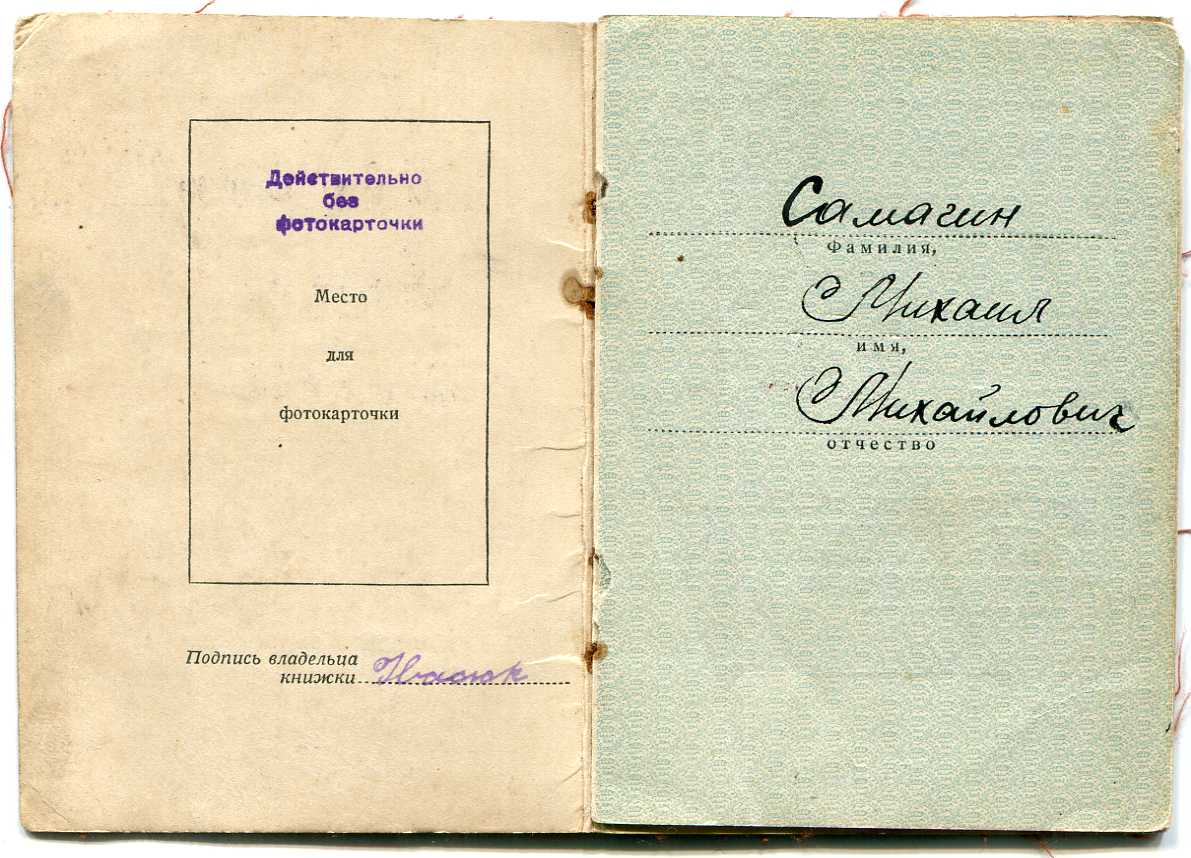 Действительно
без
фотокарточки
Место
для
фотокарточки
Подпись владельца
книжки
Самагин
Фамилия,
Михаил
имя,
Михайлович
отчество